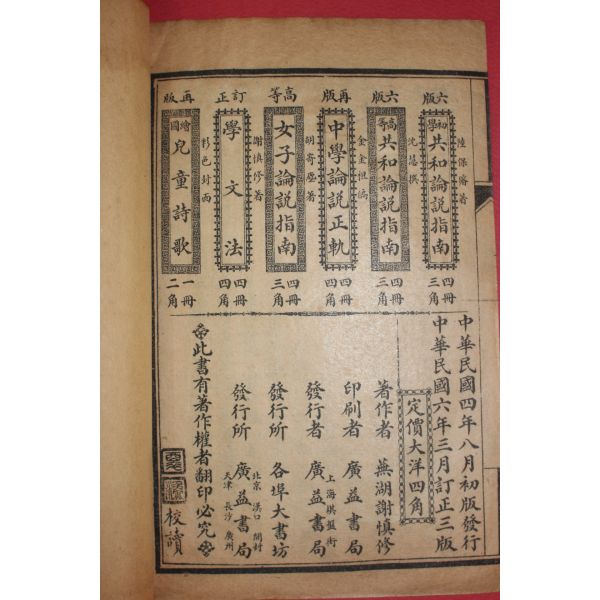 六版
初學共和論說指南
陸保璿著
四冊
三角
六版
高等共和論說指南
沈慧撰
四冊
三角
再版
中學論說正軌
四冊
四角
高等
女子論說指南
胡寄塵著
四冊
三角
訂正
學文法
謝慎修著
四冊
四角
再版
繪圖兒童詩歌
彩色封面
一冊
二角
中華民國四年八月初版發行
中華民國六年三月訂正三版
定價大洋四角
著作者 蕪湖謝慎修
印刷者 廣益書局
發行者 上海棋盤街 廣益書局
發行所 各埠大書坊
發行所 廣益書局 北京 漢口 開封 天津 長沙 廣州
此書有著作權者翻印必究
校讀